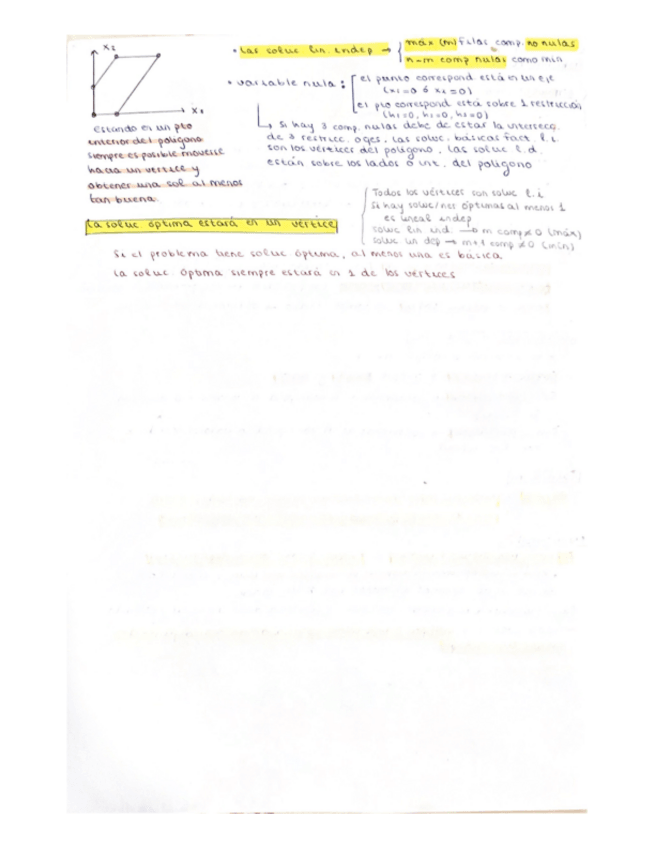 x₂
x₁
estando en un pto
interior del polígono
siempre es posible moverse
hacia un vértice y
obtener una sol al menos
tan buena.
• Las soluc lin. indep → máx (m) filas comp. no nulas
n-m comp nulas como min.
• variable nula: el punto correspond está en un eje
(x₁=0 ó x₂=0)
el pto correspond está sobre 1 restricción
(h₁=0, h₂=0, h₃=0)
↳ Si hay 3 comp. nulas debe de estar la intersecc.
de 3 restricc. o ejes, las soluc. básicas fact l.i.
son los vértices del polígono, las soluc l.d.
están sobre los lados o int. del polígono
Todos los vértices son soluc l.i
Si hay soluc/nes óptimas al menos 1
es lineal indep
soluc lin ind. → m comp ≠ 0 (máx)
soluc. lin dep → m+1 comp ≠ 0 (mín)
La soluc óptima estará en un vértice
Si el problema tiene soluc óptima, al menos una es básica
La soluc. óptima siempre estará en 1 de los vértices